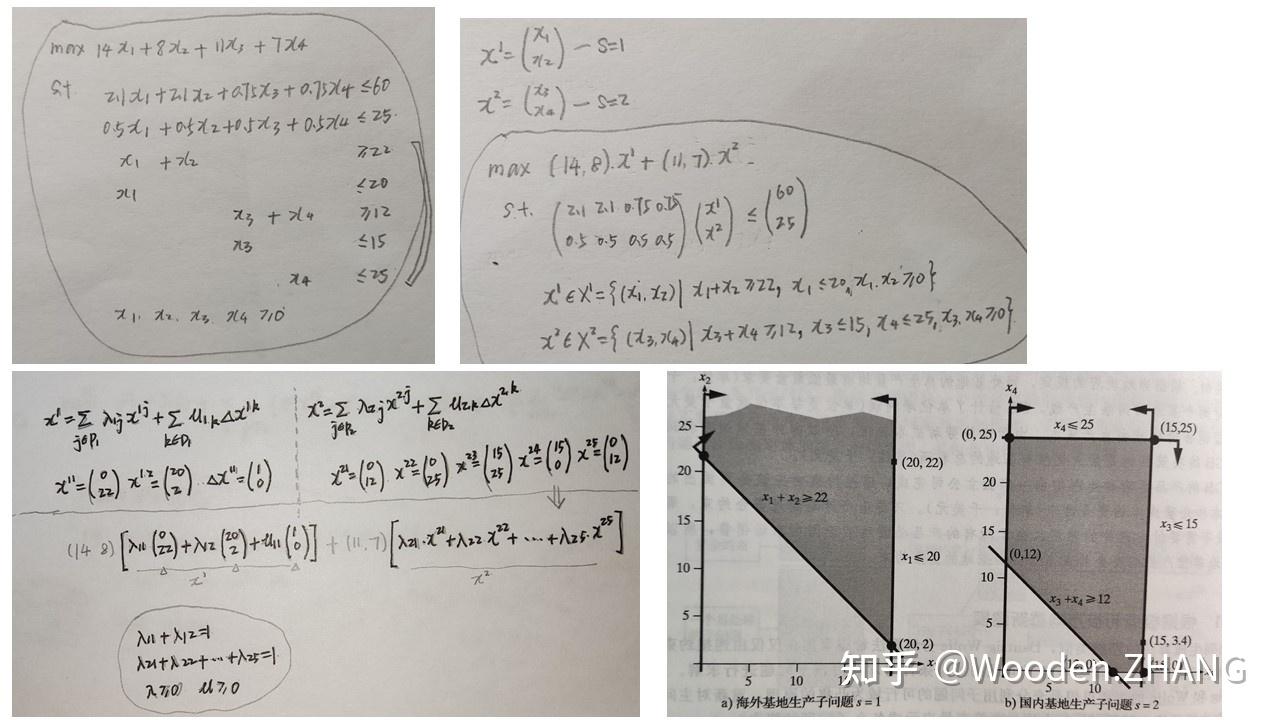 max 14x₁+8x₂+11x₃+7x₄
st 2.1x₁+2.1x₂+0.75x₃+0.75x₄≤60
0.5x₁+0.5x₂+0.5x₃+0.5x₄≤25
x₁+x₂ ≥22
x₁ ≤20
x₃+x₄ ≥12
x₃ ≤15
x₄ ≤25
x₁, x₂, x₃, x₄ ≥0
x¹=(x₁ x₂) — S=1
x²=(x₃ x₄) — S=2
max (14,8).x¹+(11,7).x²
s.t. (2.1 2.1 0.75 0.75 / 0.5 0.5 0.5 0.5)(x¹ x²)≤(60 25)
x¹∈X¹={(x₁,x₂)| x₁+x₂≥22, x₁≤20, x₁.x₂≥0}
x²∈X²={(x₃,x₄)| x₃+x₄≥12, x₃≤15, x₄≤25, x₃.x₄≥0}
x¹=∑j∈P₁ λ₁j x¹ʲ+∑k∈D₁ μ₁k Δx¹ᵏ
x²=∑j∈P₂ λ₂j x²ʲ+∑k∈D₂ μ₂k Δx²ᵏ
x¹¹=(0 22) x¹²=(20 2) Δx¹¹=(1 0)
x²¹=(0 12) x²²=(0 25) x²³=(15 25) x²⁴=(15 0) x²⁵=(0 12)
(14 8)[λ₁₁(0 22)+λ₁₂(20 2)+μ₁₁(1 0)]+(11,7)[λ₂₁.x²¹+λ₂₂x²²+…+λ₂₅.x²⁵]
x¹ x²
λ₁₁+λ₁₂=1
λ₂₁+λ₂₂+…+λ₂₅=1
λ≥0 μ≥0
x₂
25
20
15
10
5
(20, 22)
x₁+x₂≥22
x₁≤20
(20, 2)
5 10
a) 海外基地生产子问题 s=1
x₄
(0, 25)
x₄≤25
(15,25)
20
15
10
5
x₃≤15
(0,12)
x₃+x₄≥12
(15, 3.4)
5 10
b) 国内基地生产子问题 s=2
知乎 @Wooden.ZHANG